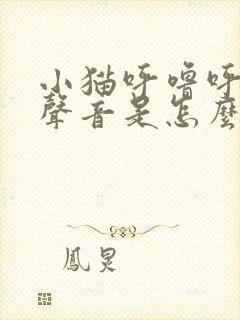 小猫呼噜呼
聲音是怎麼
鳳炅